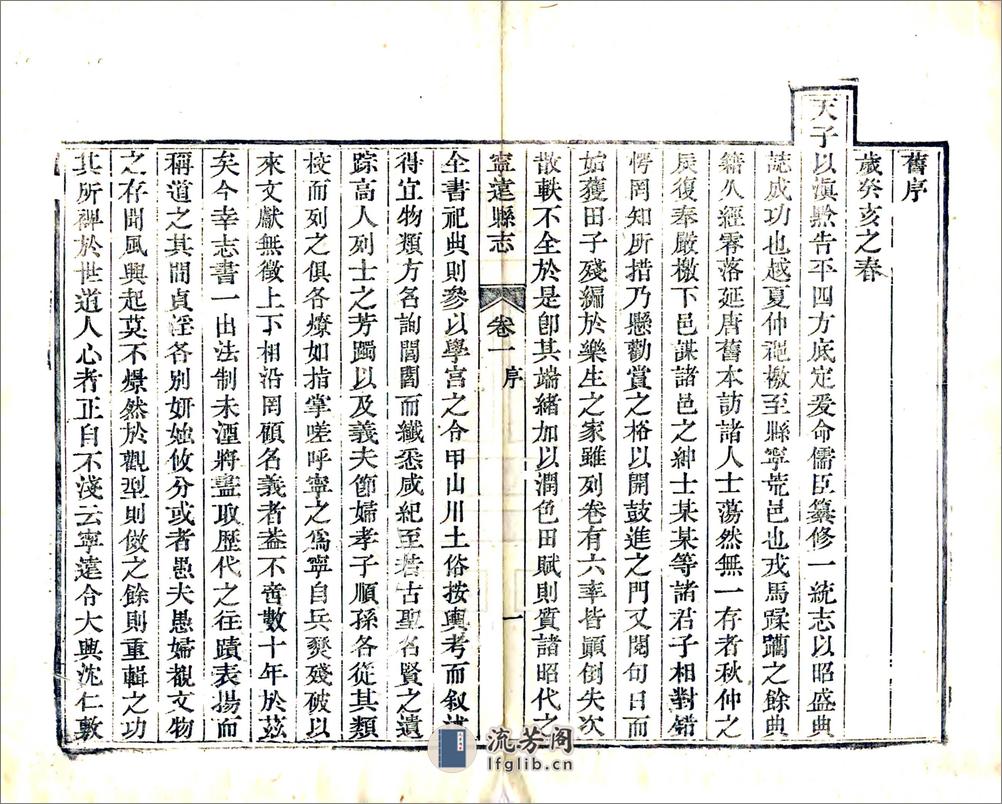 舊序
歲癸亥之春
天子以滇黔告平四方底定爰命儒臣纂修一統志以昭盛典
誌成功也越夏仲憲檄至縣寧荒邑也戎馬蹂躪之餘典
籍久經零落延唐舊本訪諸人士蕩然無一存者秋仲之
辰復奉嚴檄下邑謀諸邑之紳士某某等諸君子相對錯
愕罔知所措乃懸勸賞之格以開鼓進之門又閱旬日而
始獲田子殘編於樂生之家雖列卷有六率皆顚倒失次
散軼不全於是卽其端緒加以潤色田賦則質諸昭代之
寧遠縣志 卷一 序 一
全書祀典則參以學宮之令甲山川土俗按輿考而叙述
得宜物類方名詢閭閻而纖悉咸紀至若古聖名賢之遺
踪高人列士之芳躅以及義夫節婦孝子順孫各從其類
校而列之俱各燎如指掌嗟呼寧之爲寧自兵燹殘破以
來文獻無徵上下相沿罔顧名義者葢不啻數十年於茲
矣今幸志書一出法制未湮將盡取歷代之往蹟表揚而
稱道之其間貞淫各別妍媸攸分或者愚夫愚婦覩文物
之存聞風興起莫不憬然於觀型則倣之餘則重輯之功
其所裨於世道人心者正自不淺云寧遠令大興沈仁敷
流芳阁
lfglib.cn